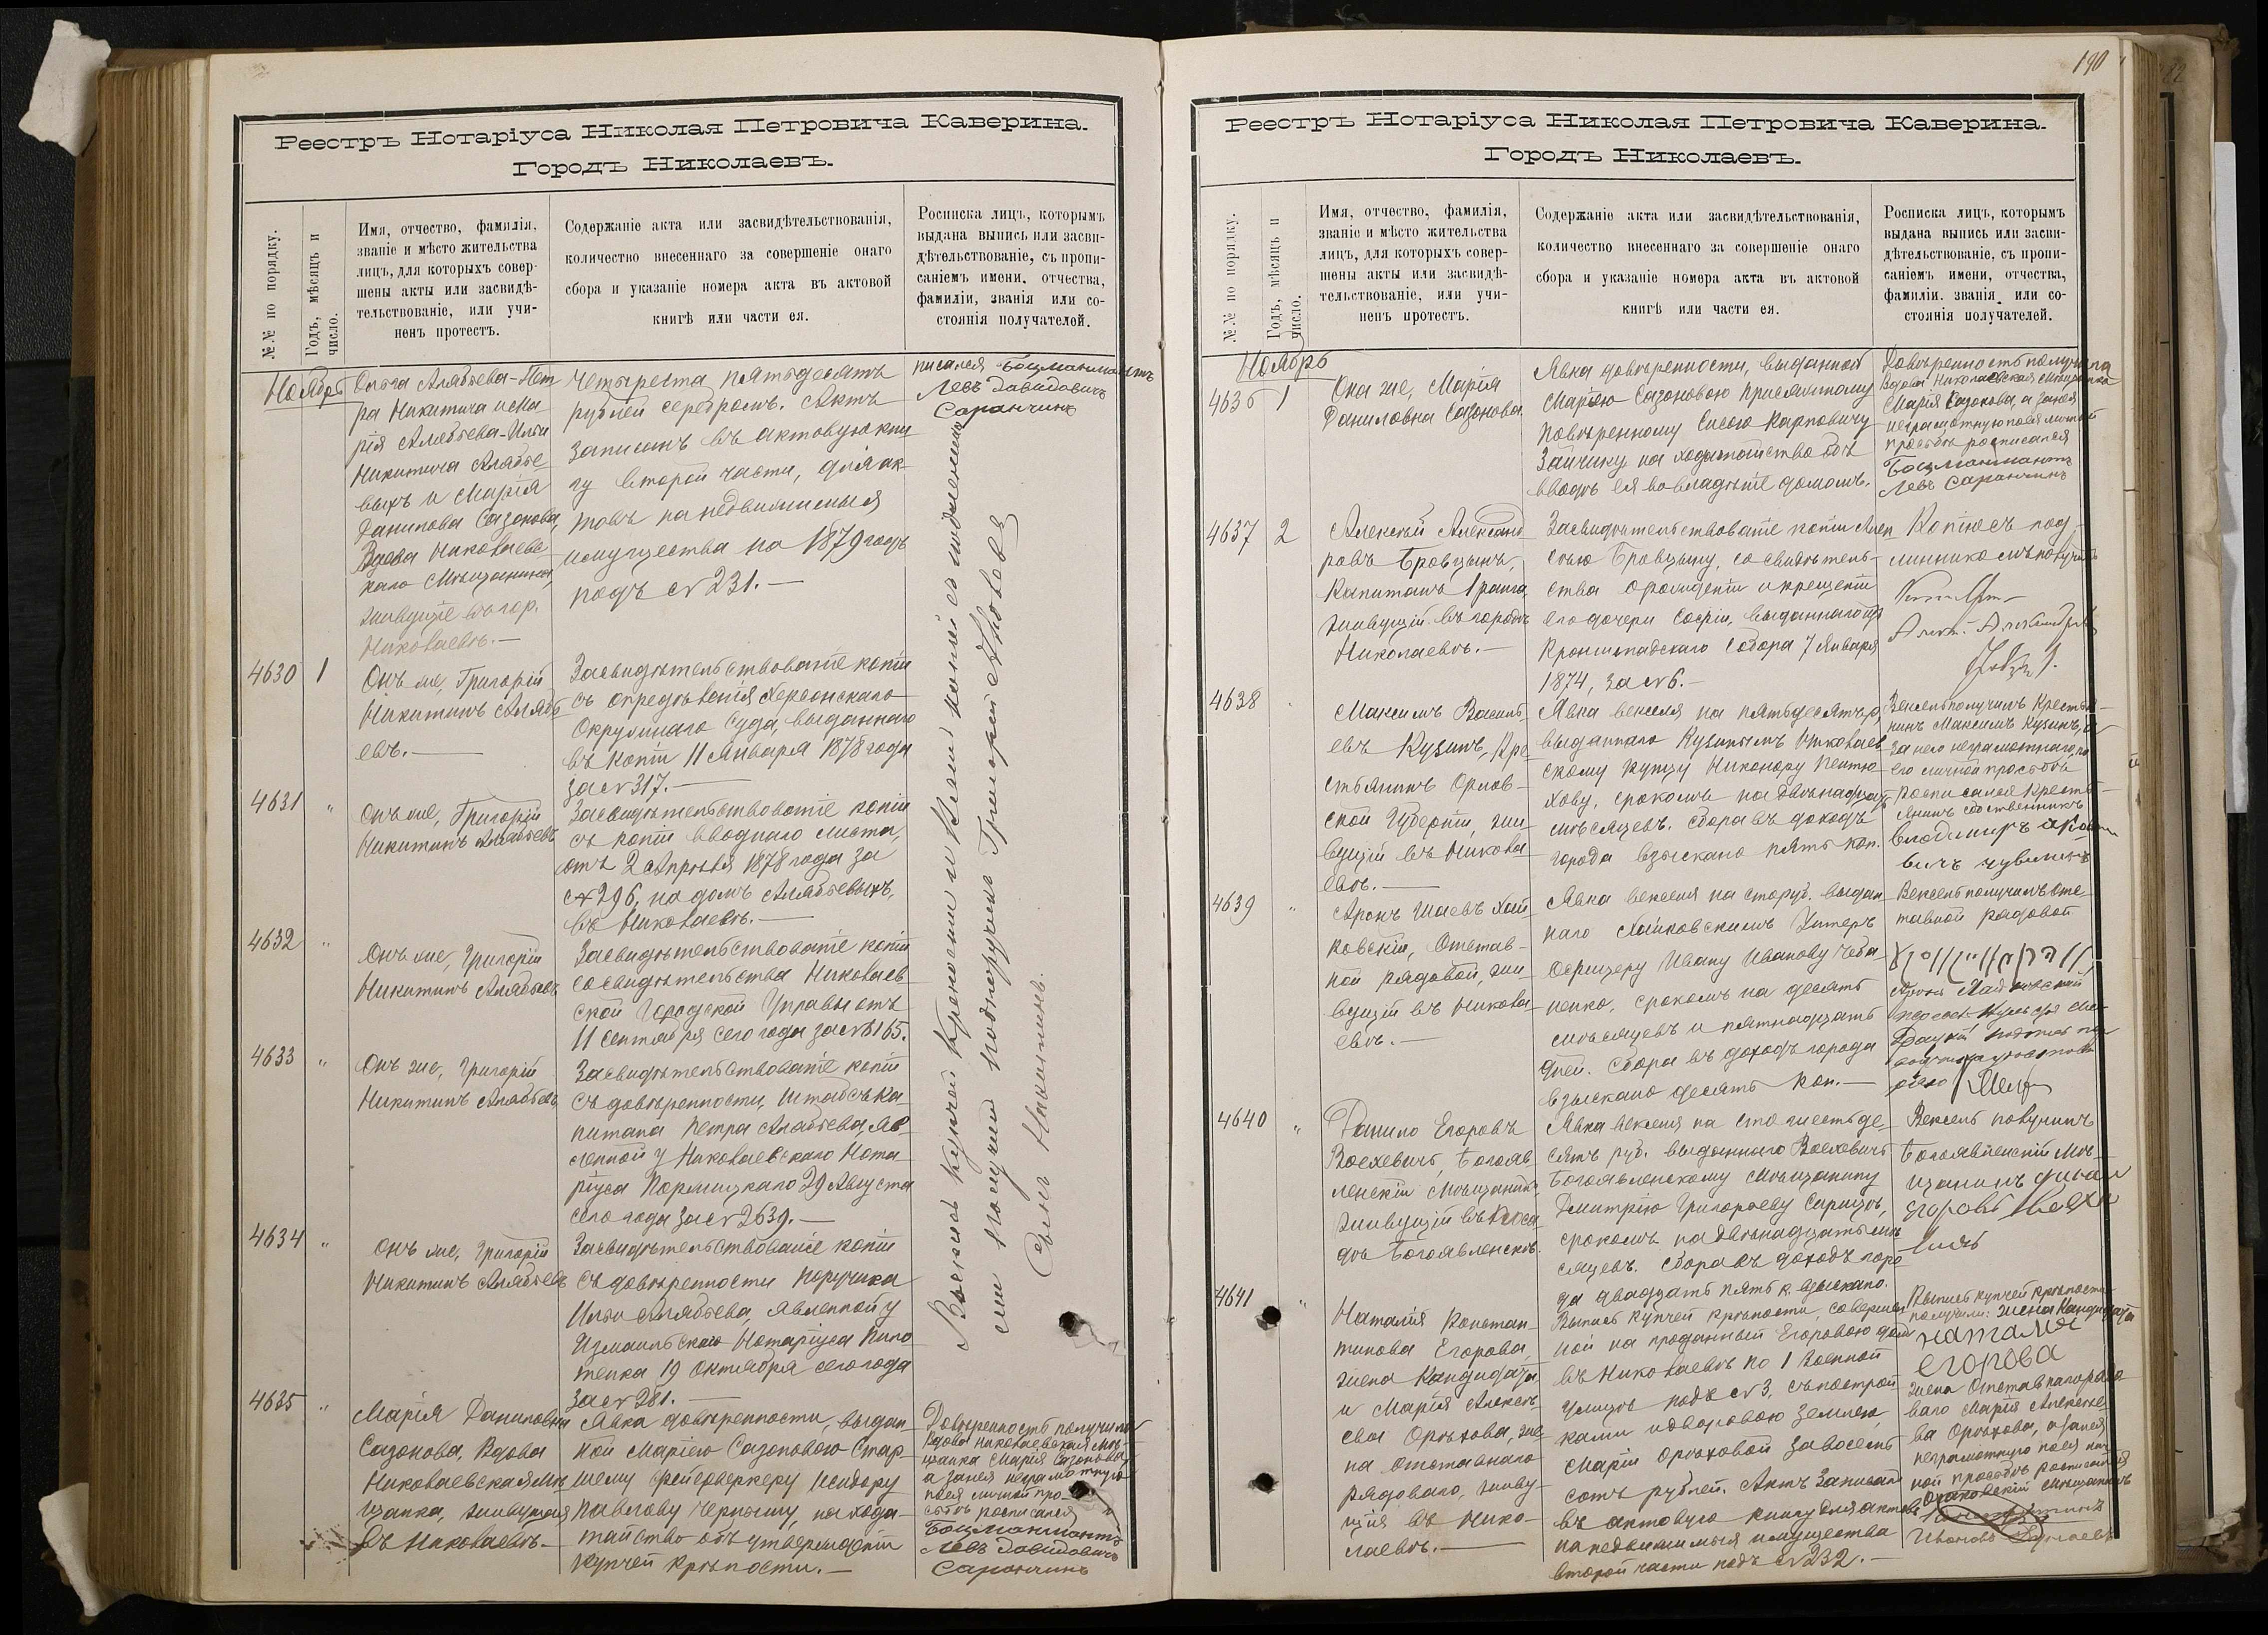 Реестръ Нотаріуса Николая Петровича Каверина.
Городъ Николаевъ.
№№ по порядку.
Годъ, мѣсяцъ и
число.
Имя, отчество, фамилія,
званіе и мѣсто жительства
лицъ, для которыхъ совер-
шены акты или засвидѣ-
тельствованіе, или учи-
ненъ протестъ.
Содержаніе акта или засвидѣтельствованія,
количество внесеннаго за совершеніе онаго
сбора и указаніе номера акта въ актовой
книгѣ или части ея.
Росписка лицъ, которымъ
выдана выпись или засви-
дѣтельствованіе, съ пропи-
саніемъ имени, отчества,
фамиліи, званія или со-
стоянія получателей.
Ноябрь
Ольга Алябьева-Пет
ра Никитича и Ма
рія Алябьева-Ильи
Никитича Алябье
выхъ и Марія
Данилова Сазонова,
Вдова Николаевс
каго Мѣщанина,
живущіе въ гор.
Николаевѣ.—
четыреста пятьдесятъ
рублей серебромъ. Актъ
записанъ въ актовую кни
гу второй части, для ак-
товъ на недвижимыя
имущества на 1879 годъ
подъ № 231.—
писался Боцманматъ
Левъ Давидовичъ
Саранчинъ
4630
1
Онъ же, Григорій
Никитинъ Алябь
евъ.—
Засвидѣтельствованіе копіи
съ опредѣленія Херсонскаго
Окружнаго Суда, выданнаго
въ копіи 11 Января 1878 года
за № 317.—
4631
"
Онъ же, Григорій
Никитинъ Алябьевъ
Засвидѣтельствованіе копіи
съ копіи вводнаго листа,
отъ 2 Апрѣля 1878 года за
№ 296, на домъ Алябьевыхъ,
въ Николаевѣ.—
4632
"
Онъ же, Григорій
Никитинъ Алябьевъ
Засвидѣтельствованіе копіи
со свидѣтельства Николаев
ской Городской Управы отъ
11 Сентября сего года за № 6165.
4633
"
Онъ же, Григорій
Никитинъ Алябьевъ
Засвидѣтельствованіе копіи
съ довѣренности, Штабсъ Ка-
питана Петра Алябьева, яв-
ленной у Николаевскаго Нота-
ріуса 29 Августа
сего года за № 2639.—
4634
"
Онъ же, Григорій
Никитинъ Алябьевъ
Засвидѣтельствованіе копіи
съ довѣренности Поручика
Ильи Алябьева, явленной у
Измаильскаго Нотаріуса
19 Октября сего года
за № 281.—
4635
"
Марія Даниловна
Сазонова, Вдова
Николаевская Мѣ
щанка, живущая
въ Николаевѣ.—
Явка довѣренности, выдан-
ной Маріею Сазоновою Стар-
шему фейерверкеру
Павлову на хода-
тайство объ утвержденіи
купчей крѣпости.—
Довѣренность получила
Вдова Николаевская Мѣ-
щанка Марія Сазонова,
а за нея неграмотную
по ея личной про-
сьбѣ росписался
Боцманматъ
Левъ Давидовичъ
Саранчинъ
Выпись купчей крѣпости и
получилъ подпоручикъ Григорій
Сынъ Никитинъ.
190
Реестръ Нотаріуса Николая Петровича Каверина.
Городъ Николаевъ.
№№ по порядку.
Годъ, мѣсяцъ и
число.
Имя, отчество, фамилія,
званіе и мѣсто жительства
лицъ, для которыхъ совер-
шены акты или засвидѣ-
тельствованіе, или учи-
ненъ протестъ.
Содержаніе акта или засвидѣтельствованія,
количество внесеннаго за совершеніе онаго
сбора и указаніе номера акта въ актовой
книгѣ или части ея.
Росписка лицъ, которымъ
выдана выпись или засви-
дѣтельствованіе, съ пропи-
саніемъ имени, отчества,
фамиліи. званія или со-
стоянія получателей.
Ноябрь
4636
1
Она же, Марія
Даниловна Сазонова
Явка довѣренности, выданной
Маріею Сазоновою Присяжному
Повѣренному Сысою Карповичу
Зайчику на ходатайство объ
вводѣ ея во владѣніе домомъ.
Довѣренность получила
Вдова Николаевская Мѣщанка
Марія Сазонова, а за нея
неграмотную по ея личной
просьбѣ росписался
Боцманматъ
Левъ Саранчинъ
4637
2
Алексѣй Александ
ровъ Бровцынъ,
Капитанъ 1 ранга
живущій въ городѣ
Николаевѣ.—
Засвидѣтельствованіе копіи Алек
сѣю Бровцыну, со свидѣтель-
ства о рожденіи и крещеніи
его дочери Софіи, выданнаго изъ
Кронштадскаго Собора 7 Января
1874, за № 6.—
Копію съ под-
линникомъ получилъ
4638
"
Максимъ Василь
евъ Кузинъ, Кре
стьянинъ Орлов-
ской Губерніи, жи-
вущій въ Никола
евѣ.—
Явка векселя на пятьдесятъ р.
выданнаго Кузинымъ Николаев
скому купцу Никонору Пентю-
хову, срокомъ на двѣнадцать
мѣсяцевъ. Сбора въ доходъ
города взыскано пять коп.
Вексель получилъ Крестья-
нинъ Максимъ Кузинъ, а
за него неграмотнаго, по
его личной просьбѣ
росписался Кресть-
янинъ собственникъ
Владимиръ
4639
"
Аронъ Шаевъ Хай
ковскій, Отстав-
ной рядовой, жи-
вущій въ Никола
евѣ.—
Явка векселя на сто руб. выдан
наго Хайковскимъ Унтеръ
Офицеру Ивану Иванову Чеба-
ненко, срокомъ на десять
мѣсяцевъ и пятнадцать
дней. Сбора въ доходъ города
взыскано десять коп.—
Вексель получилъ отс
тавной рядовой
4640
"
Данило Егоровъ
Воехевичъ, Богояв
ленскій Мѣщанинъ,
живущій въ Поса
дѣ Богоявленскѣ.
Явка векселя на сто шестьде-
сятъ руб. выданнаго Воехевичъ
Богоявленскому Мѣщанину
Дмитрію Григорьеву
срокомъ на двѣнадцать мѣ
сяцевъ. Сбора въ доходъ горо
да двадцать пять к. взыскано.
Вексель получилъ
Богоявленскій Мѣ-
щанинъ
Егоровъ
4641
"
Наталія Констан
тинова Егорова,
жена Кандидата
и Марія Алексѣ-
ева Орѣхова, же
на Отставнаго
рядоваго, живу-
щія въ Нико-
лаевѣ.—
Выпись купчей крѣпости, совершен
ной на проданный Егоровою домъ
въ Николаевѣ по 1 Военной
улицѣ подъ № 3, съ построй
ками и дворовою землею,
Маріи Орѣховой за восемь
сотъ рублей. Актъ записанъ
въ актовую книгу для актовъ
на недвижимыя имущества
второй части подъ № 232.—
Выпись купчей крѣпости
получили: жена Кандидата
Наталия
Егорова
жена Отставнаго рядо
ваго Марія Алексѣе-
ва Орѣхова, а за нея
неграмотную по ея лич
ной просьбѣ росписался
Очаковскій Мѣщанинъ